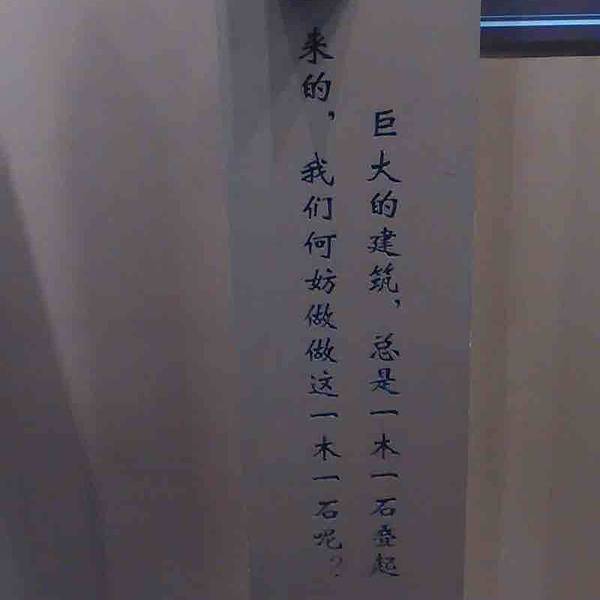 巨大的建筑，总是一木一石叠起
来的，我们何妨做做这一木一石呢？